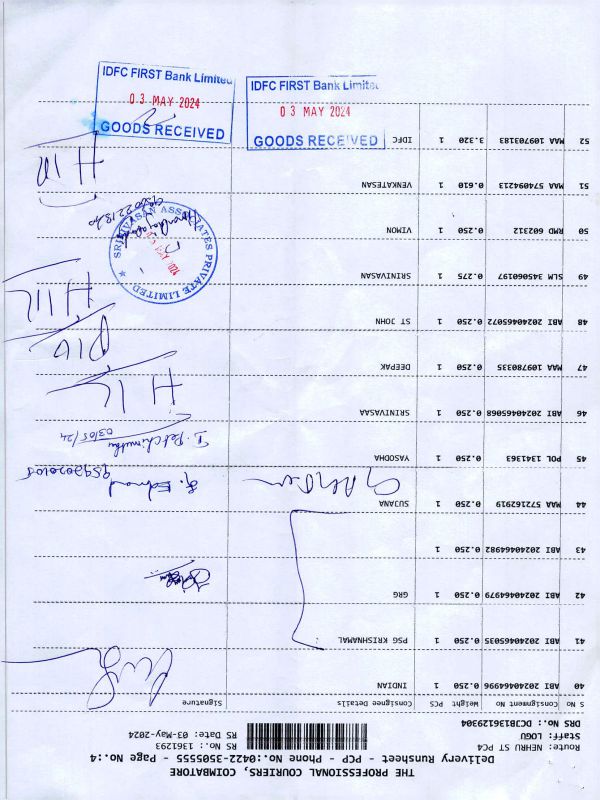 THE PROFESSIONAL COURIERS, COIMBATORE
Delivery Runsheet - PCP - Phone No:0422-3505555 - Page No.:4
Route: NEHRU ST PC4
Staff: LOGU
DRS No.: DCJB136129304
RS No.: 1361293
RS Date: 03-May-2024
S No Consignment No Weight PCS Consignee Details Signature
40 ABI 20240464996 0.250 1 INDIAN
41 ABI 20240465035 0.250 1 PSG KRISHNAMAL
42 ABI 20240464979 0.250 1 GRG
43 ABI 20240464982 0.250 1
44 MAA 572162919 0.250 1 SUJANA
45 POL 1341363 0.250 1 YASODHA
46 ABI 20240465068 0.250 1 SRINIVASAA
47 MAA 109780335 0.250 1 DEEPAK
48 ABI 20240465072 0.250 1 ST JOHN
49 SLM 345060197 0.275 1 SRINIVASAN
50 RMD 602312 0.250 1 VIMON
51 MAA 574094213 0.610 1 VENKATESAN
52 MAA 109703183 3.320 1 IDFC
03/05/24
SRINIVASAN ASSOCIATES PRIVATE LIMITED
IDFC FIRST Bank Limited
03 MAY 2024
GOODS RECEIVED
IDFC FIRST Bank Limited
03 MAY 2024
GOODS RECEIVED